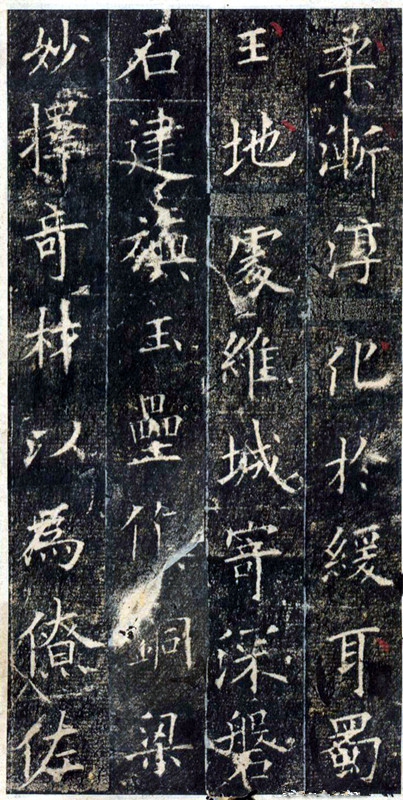 柔漸淳化於緩耳蜀
王地處維城寄深磐
石建旟玉壘作鎮銅梁
妙擇奇材以為僚佐